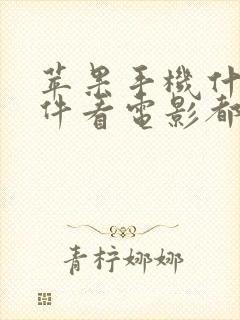 苹果手機什
件看電影都
青柠娜娜